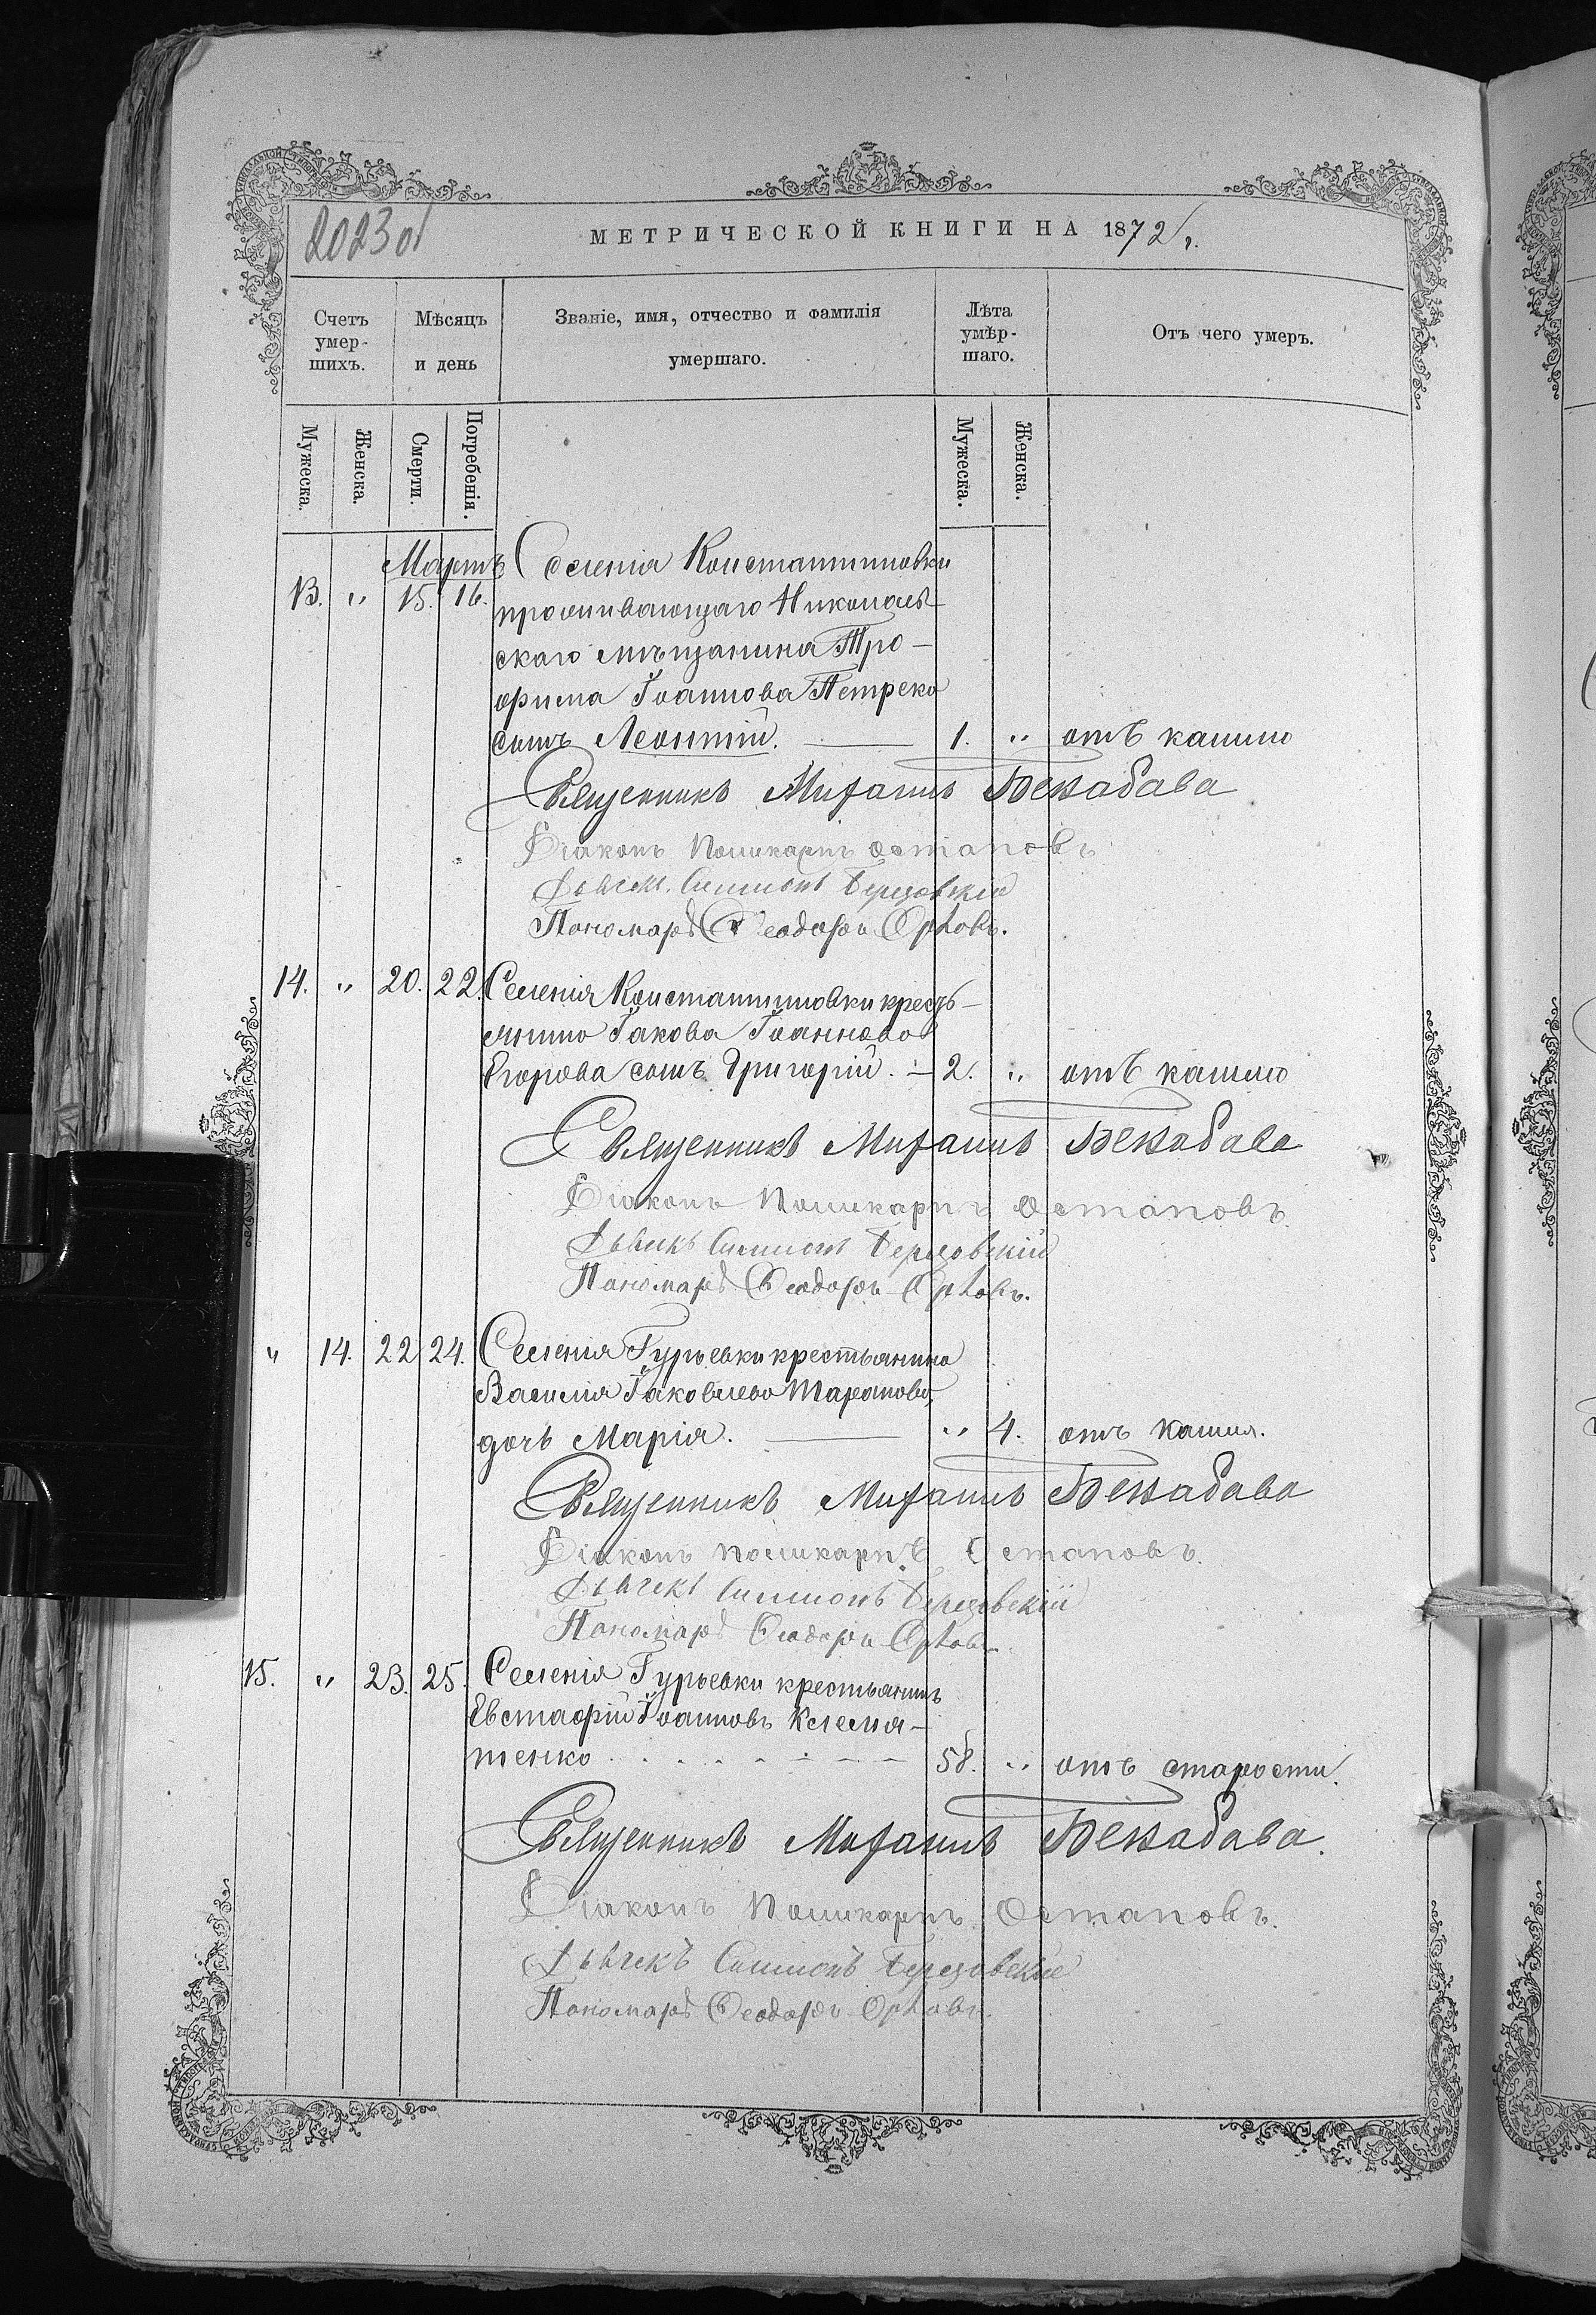 2023 об
МЕТРИЧЕСКОЙ КНИГИ НА 1872 г.
Счетъ умер- шихъ.
Мѣсяцъ и день
Званіе, имя, отчество и фамилія умершаго.
Лѣта умѣр- шаго.
Отъ чего умеръ.
Мужеска. Женска. Смерти. Погребенія. Мужеска. Женска.
Мартъ Селенія Константиновки
13. " 15. 16. проживающаго Николаев-
скаго мѣщанина Тро-
фима Іоаннова Петрека
сынъ Леонтій. 1. " отъ кашлю
Священникъ Михаилъ Бензабава
Діаконъ Поликарпъ Остаповъ
Дьячек. Симеонъ Березовскій
Пономарь Феодоръ Орловъ.
14. " 20. 22. Селенія Константиновки кресть-
янина Іакова Іоаннова
Егорова сынъ Григорій. - 2. " отъ кашлю
Священникъ Михаилъ Бензабава
Діаконъ Поликарпъ Остаповъ.
Дьячекъ Симеонъ Березовскій
Пономарь Феодоръ Орловъ.
" 14. 22 24. Селенія Гурьевки крестьянина
Василія Іаковлева Таранова,
дочь Марія. " 4. отъ кашля.
Священникъ Михаилъ Бензабава
Діаконъ Поликарпъ Остаповъ.
Дьячекъ Симеонъ Березовскій
Пономарь Феодоръ Орловъ.
15. " 23. 25. Селенія Гурьевки крестьянинъ
Евстафій Іоанновъ Клемя-
тенко 58. " отъ старости.
Священникъ Михаилъ Бензабава.
Діаконъ Поликарпъ Остаповъ.
Дьячекъ Симеонъ Березовскій
Пономарь Феодоръ Орловъ.